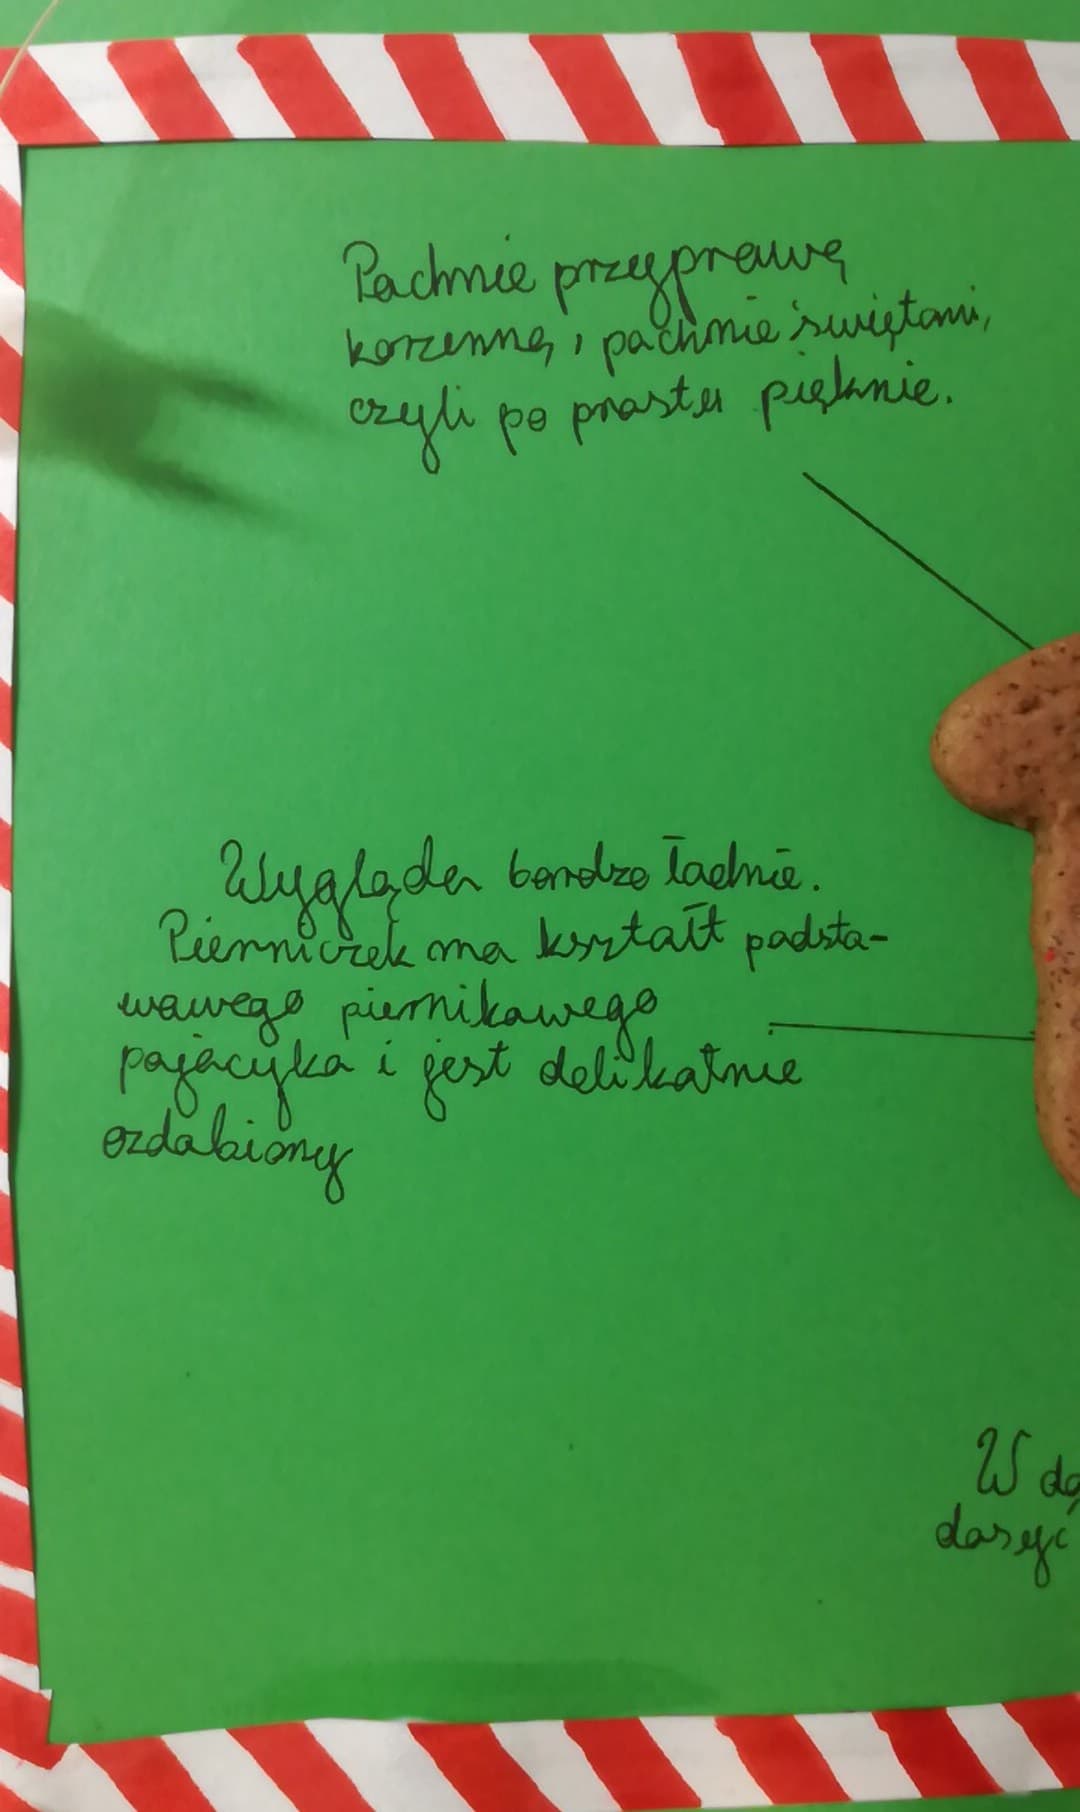 Pachnie przyprawą
korzenną, i pachnie świętami,
czyli po prostu pięknie.
Wygląda bardzo ładnie.
Pierniczek ma kształt podsta-
wowego piernikowego
pajacyka i jest delikatnie
ozdobiony
W do
dosyć